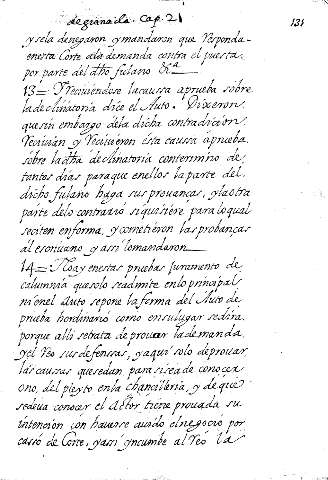 de granada. Cap. 21
131
y se la denegaron y mandaron que Responda
en esta Corte a la demanda contra el puesta
por parte del dho fulano &a.
13= Y Reciviendose la caussa a prueba sobre
la declinatoria dice el Auto. Dixeron
que sin embargo de la dicha contradicion
Recivian y Recivieron esta caussa a prueba
sobre la dha declinatoria con termino de
tantos dias para que en ellos la parte del
dicho fulano haga sus provanças, y la otra
parte de lo contrario si quisiere para lo qual
se citen en forma, y cometieron las probanças
al escrivano y assi lo mandaron
14= No ay en estas pruebas Juramento de
calumnia que solo se admite en lo principal
ni en el Auto se pone la forma del Auto de
prueba hordinario como en su lugar se dira
porque alli se trata de provar la demanda
y el Reo sus defensas, y aqui solo de provar
las causas que se dan para si se a de conocer
o no, del pleyto en la chancilleria, y de que
se deva conocer el Actor tiene provada su
intencion con haverse avido el negocio por
casso de Corte, y assi yncumbe al Reo la